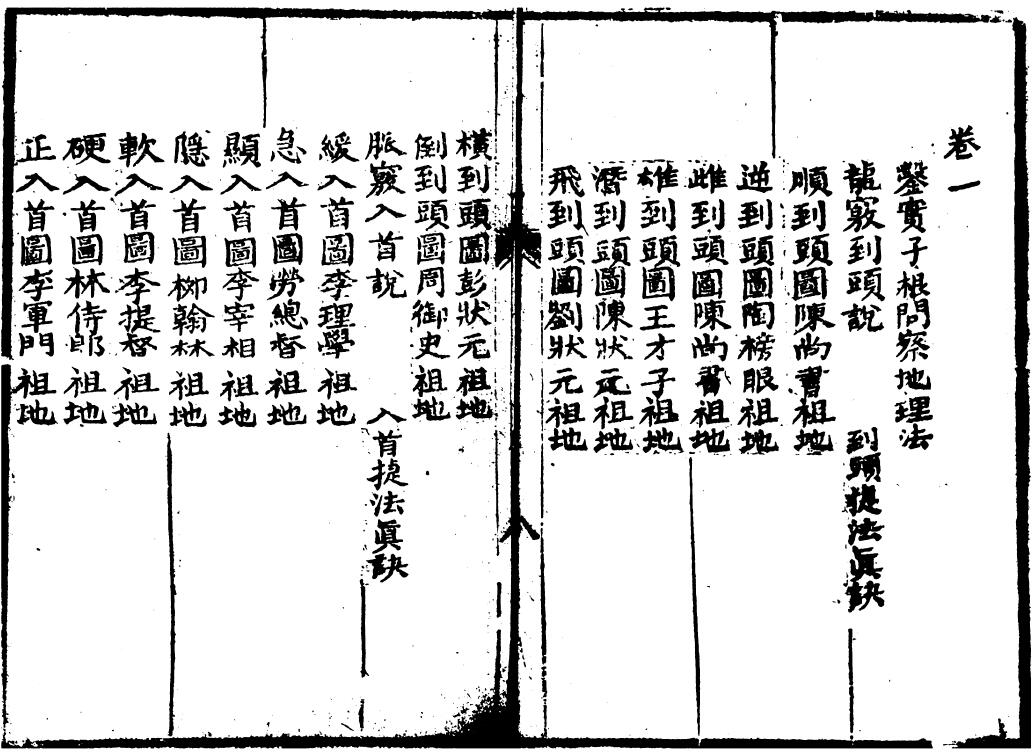 卷一
鑿實子根問察地理法
龍竅到頭說 到頭捷法眞訣
順到頭圖陳尚書祖地
逆到頭圖陶榜眼祖地
雌到頭圖陳尚書祖地
雄到頭圖王才子祖地
潛到頭圖陳狀元祖地
飛到頭圖劉狀元祖地
橫到頭圖彭狀元祖地
倒到頭圖周御史祖地
脈竅入首說 入首捷法眞訣
緩入首圖李理學祖地
急入首圖勞總督祖地
顯入首圖李宰相祖地
隱入首圖柳翰林祖地
軟入首圖李提督祖地
硬入首圖林侍郎祖地
正入首圖李軍門祖地
八